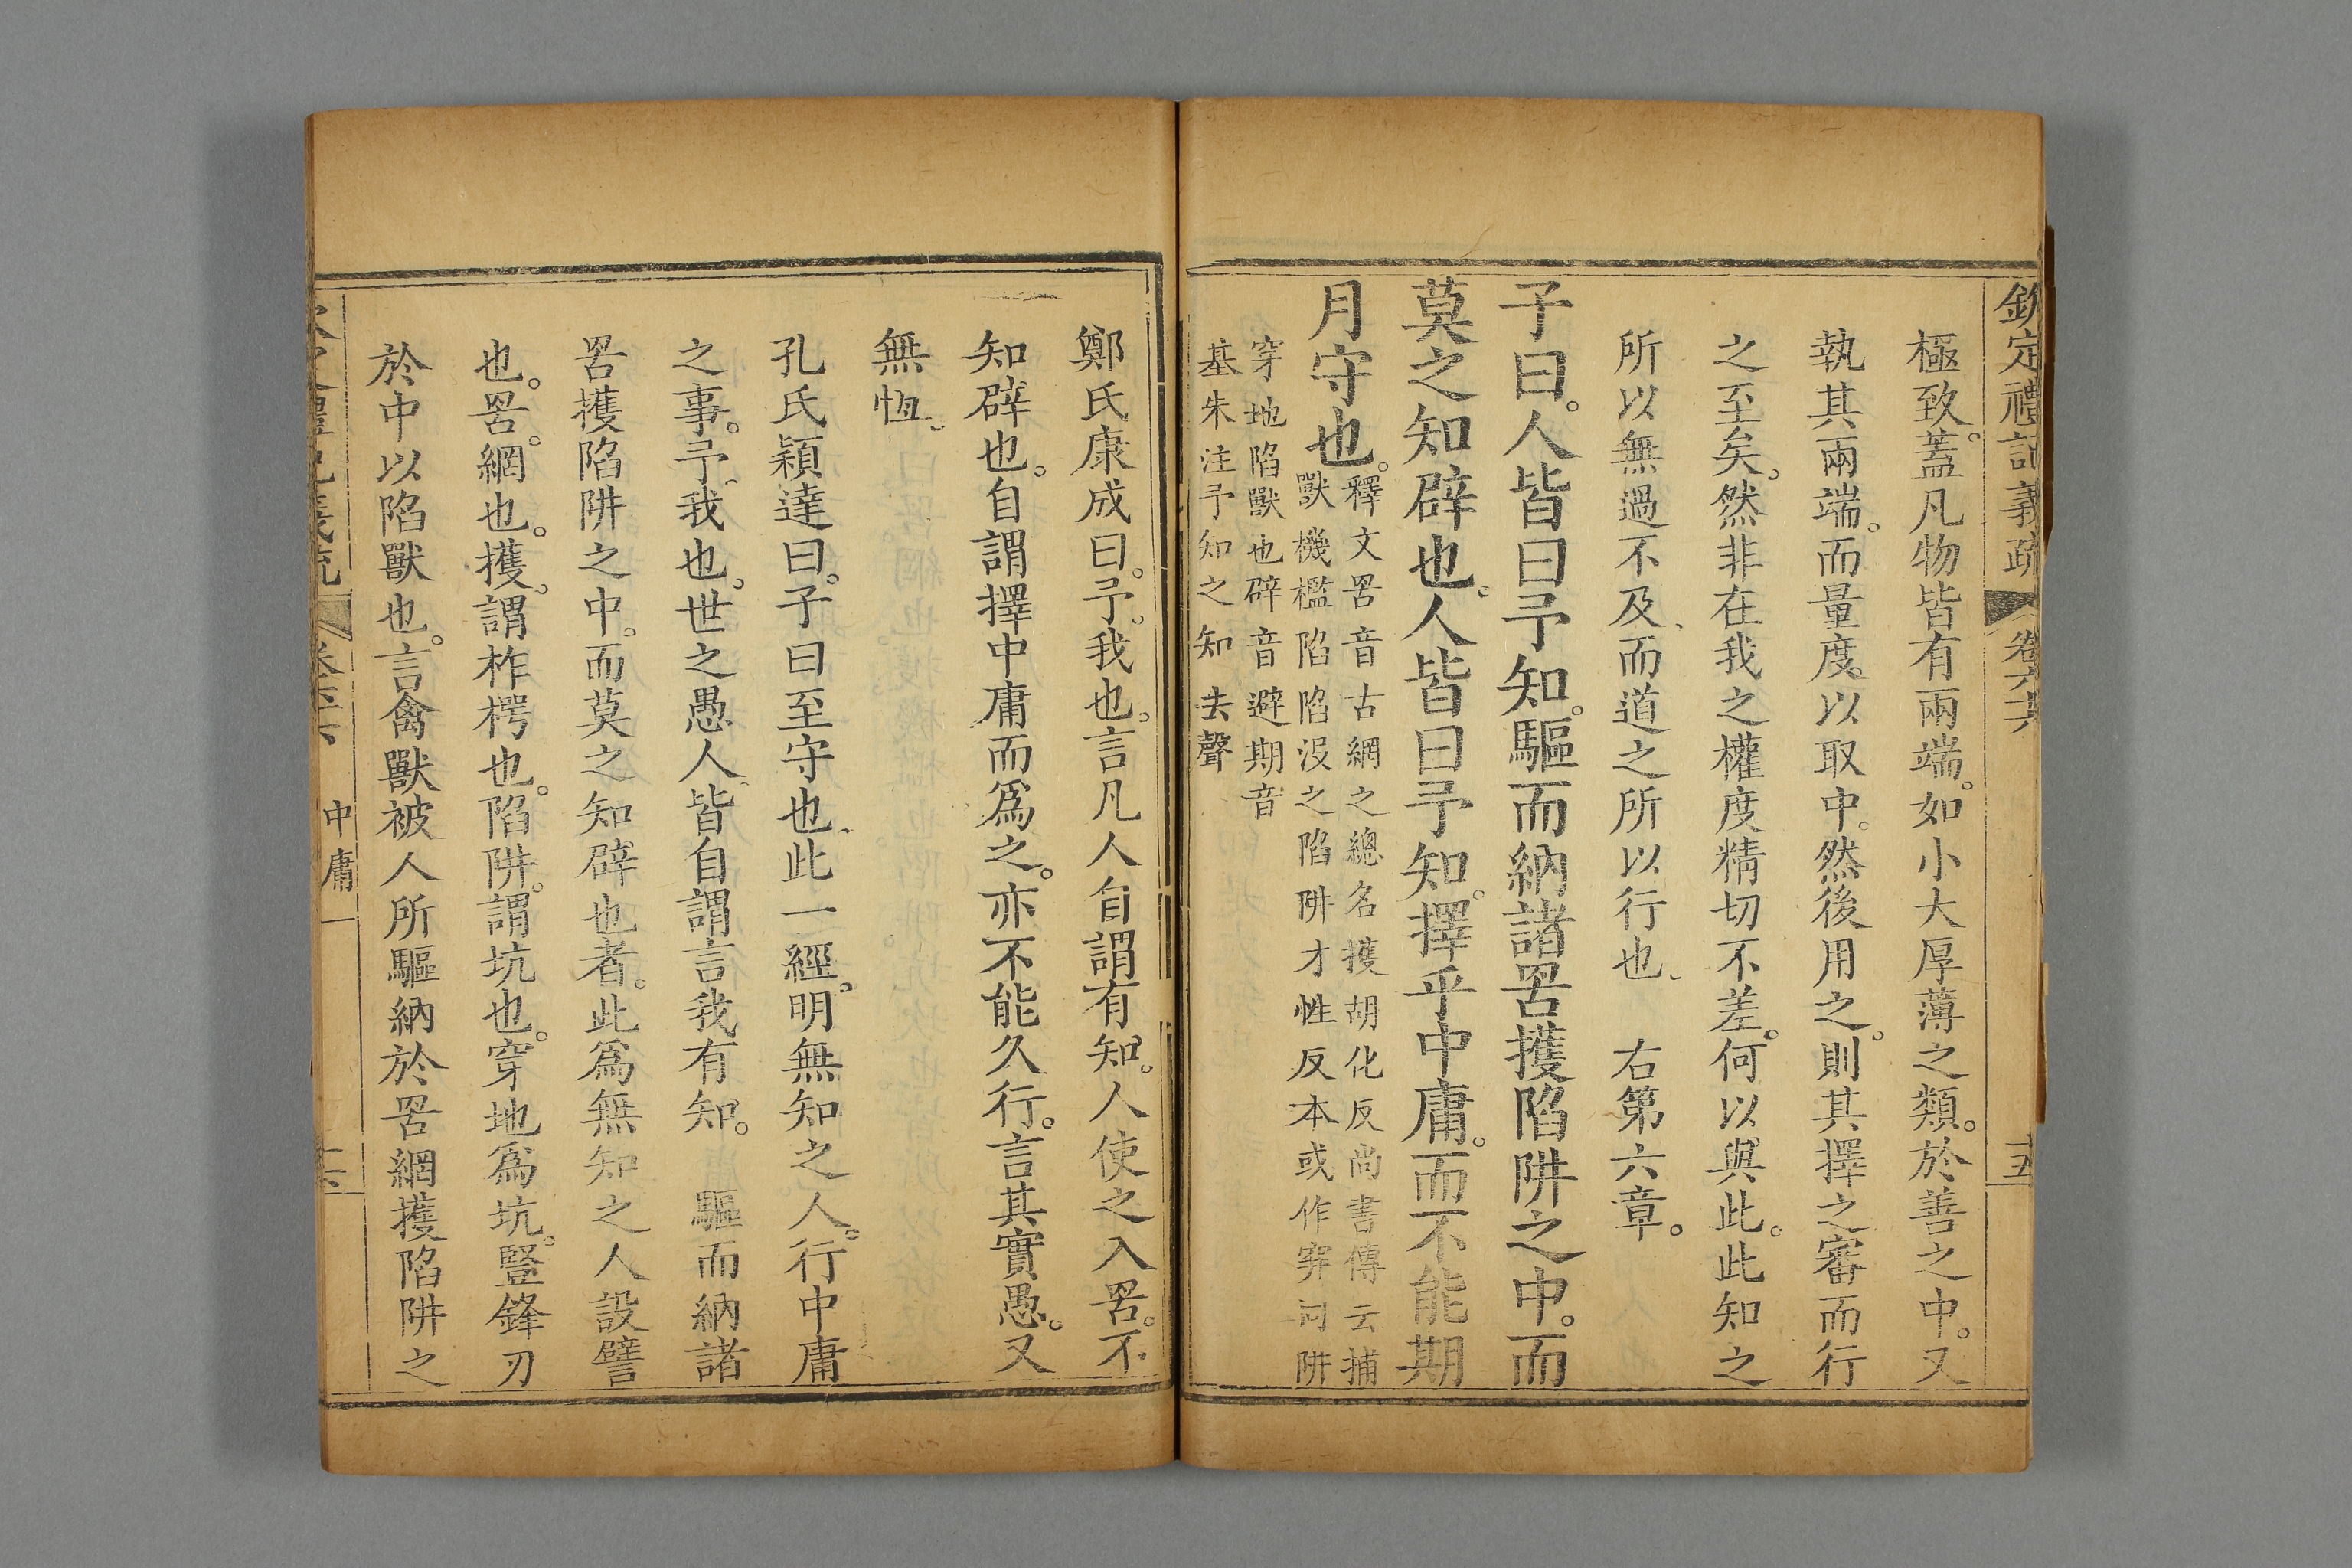 欽定禮記義疏 卷六十六 十五
極致。蓋凡物皆有兩端。如小大厚薄之類。於善之中。又
執其兩端。而量度。以取中。然後用之。則其擇之審而行
之至矣。然非在我之權度精切不差。何以與此。此知之
所以無過不及、而道之所以行也、 右第六章。
子曰。人皆曰予知。驅而納諸罟擭陷阱之中。而
莫之知辟也。人皆曰予知。擇乎中庸。而不能期
月守也。
釋文罟音古網之總名擭胡化反尚書傳云捕
獸機檻陷陷沒之陷阱才性反本或作穽同阱
穿地陷獸也辟音避期音
基朱注予知之知去聲
鄭氏康成曰。予。我也。言凡人自謂有知。人使之入罟。不
知辟也。自謂擇中庸而爲之。亦不能久行。言其實愚。又
無恆。
孔氏穎達曰。子曰至守也、此一經。明無知之人。行中庸
之事。予、我也。世之愚人、皆自謂言我有知。 驅而納諸
罟擭陷阱之中。而莫之知辟也者。此爲無知之人設譬
也。罟。網也。擭。謂柞楞也。陷阱。謂坑也。穿地爲坑。豎鋒刃
於中以陷獸也。言禽獸被人所驅納於罟網擭陷阱之
中庸